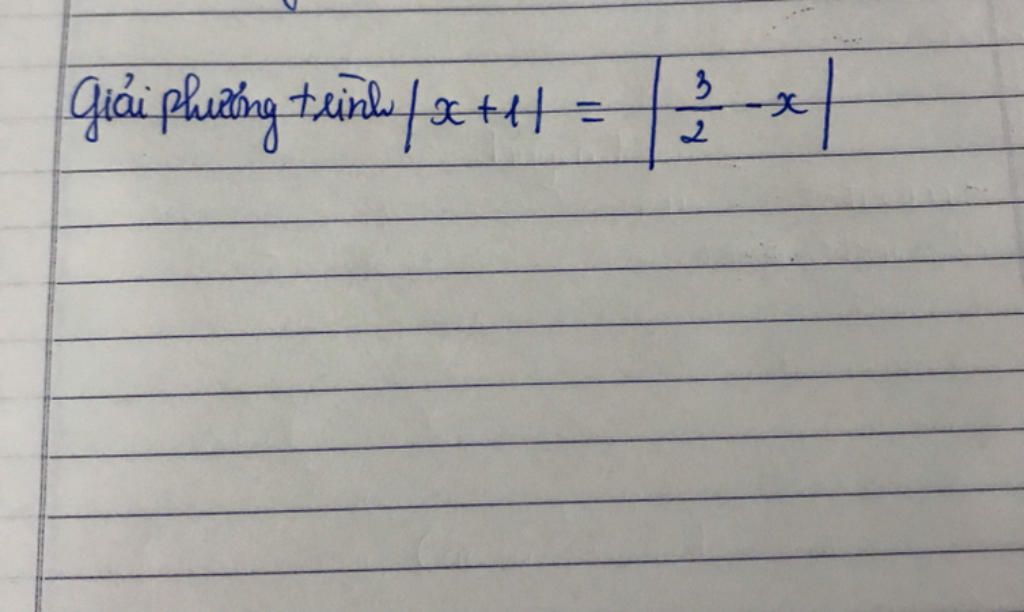 Giải phương trình |x + 1| = |3/2 - x|